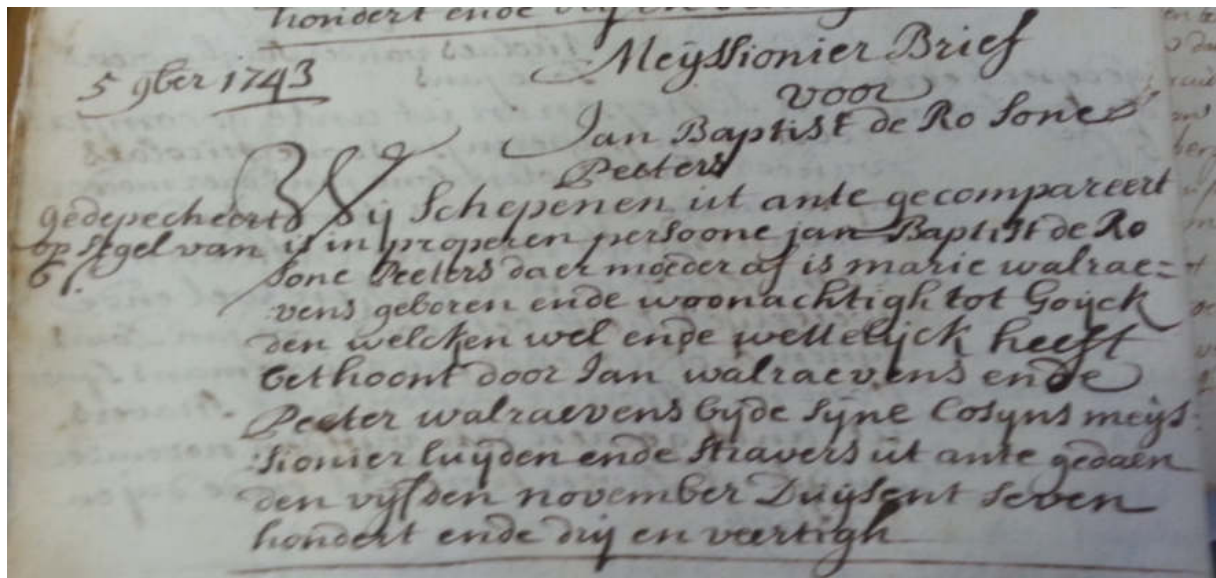 hondert ende drij en veertigh
5 9ber 1743
Meijssionier Brief
voor
Jan Baptist de Ro sone
Peeters
gedepecheert
op segel van
6 s.
Wij Schepenen ut ante gecompareert
is in properen persoone jan Baptist de Ro
sone Peeters daer moeder af is marie walrae=
vens geboren ende woonachtigh tot Goijck
den welcken wel ende wettelijck heeft
bethoont door Jan walraevens ende
Peeter walraevens bijde sijne Cosyns meijs=
sionier luijden ende stravers ut ante gedaen
den vijfden november Duijsent seven
hondert ende drij en veertigh